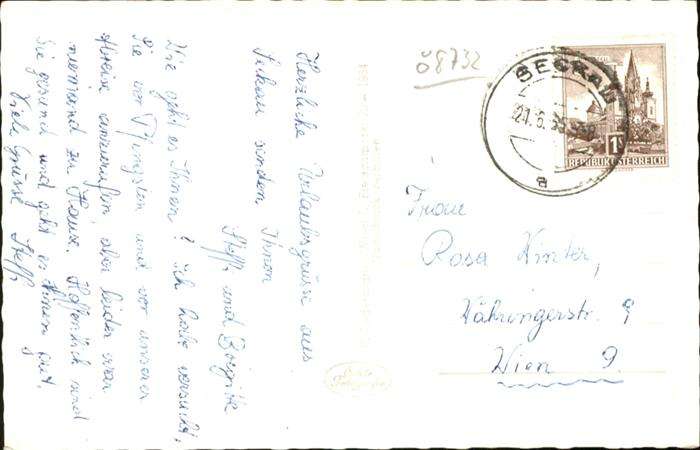 Herzliche Urlaubsgrüsse aus
Seckau senden Ihnen
Steffi und Brigitte
Wie geht es Ihnen? Ich habe versucht,
Sie vor Pfingsten und vor unserer
Abreise anzurufen aber leider war
niemand zu Hause. Hoffentlich sind
Sie gesund und geht es Ihnen gut.
Viele Grüsse Steffi
ö8732
SECKAU
21.6.
a
1S
REPUBLIK ÖSTERREICH
Frau
Rosa Winter,
Währingerstr. 9
Wien 9.